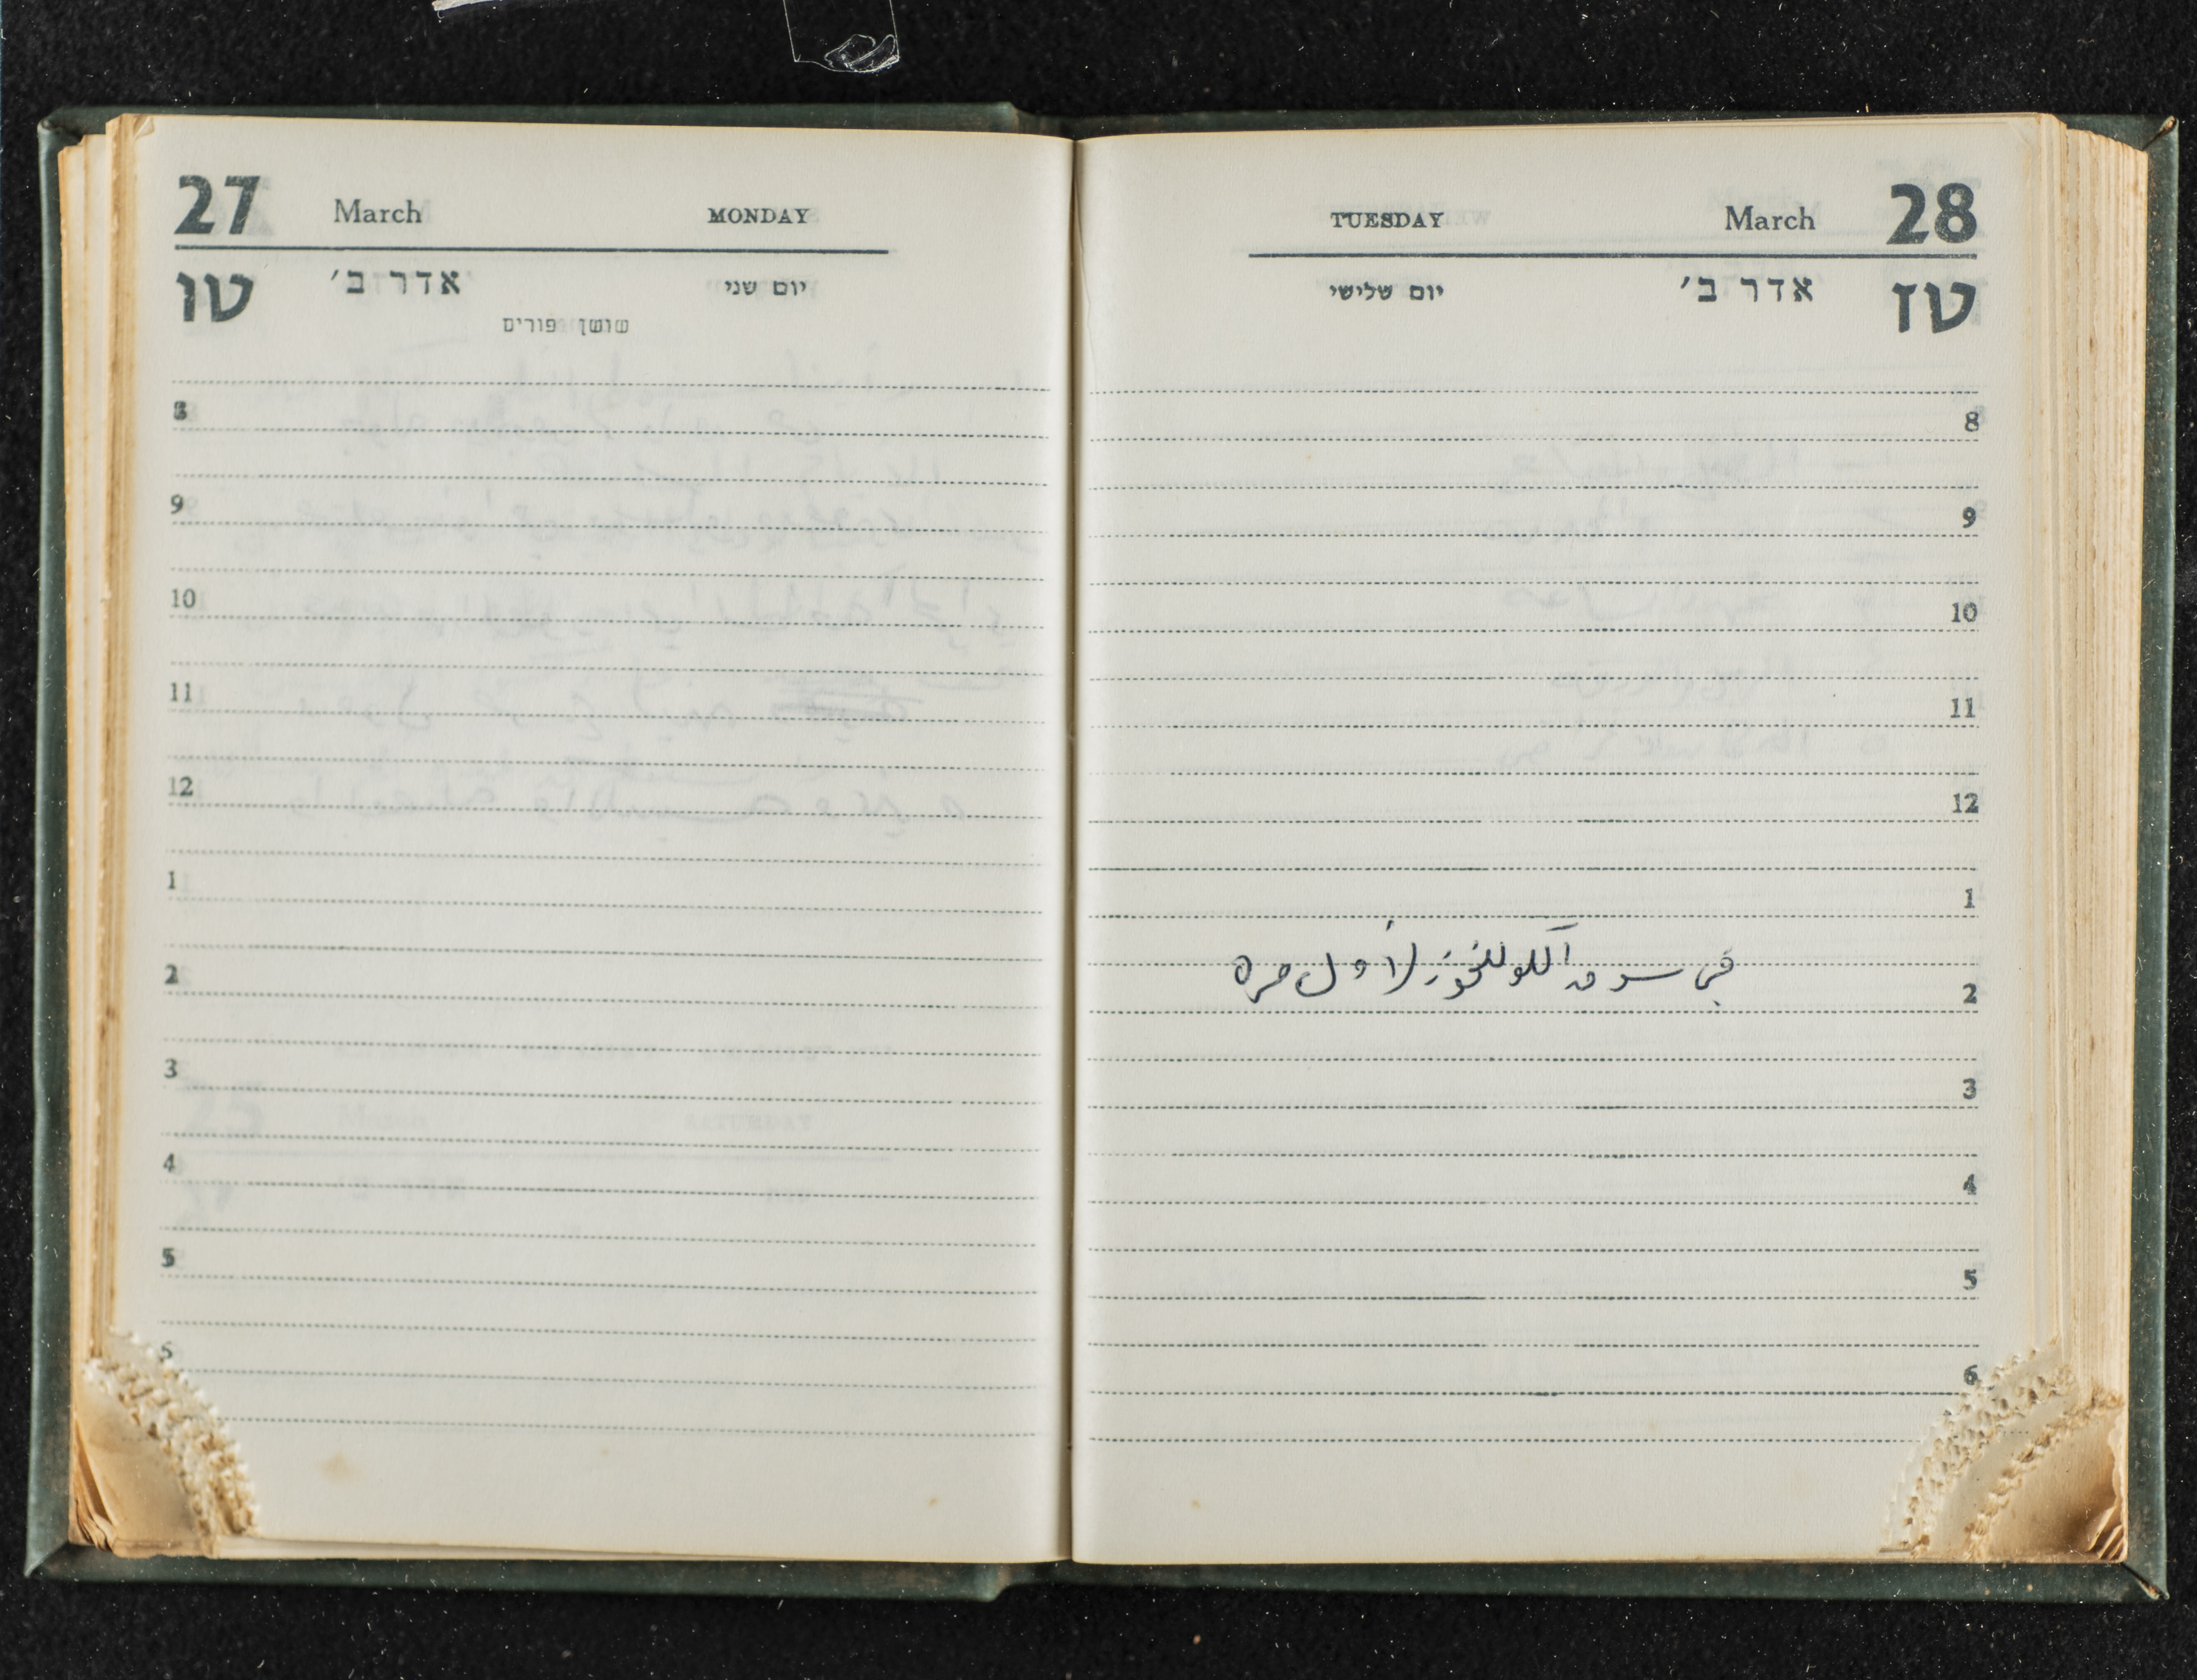 27 March MONDAY
טו אדר ב׳ יום שני
שושן פורים
8
9
10
11
12
1
2
3
4
5
6
TUESDAY March 28
יום שלישי אדר ב׳ טז
8
9
10
11
12
1
في سوق الكولخوز لأول مره
2
3
4
5
6